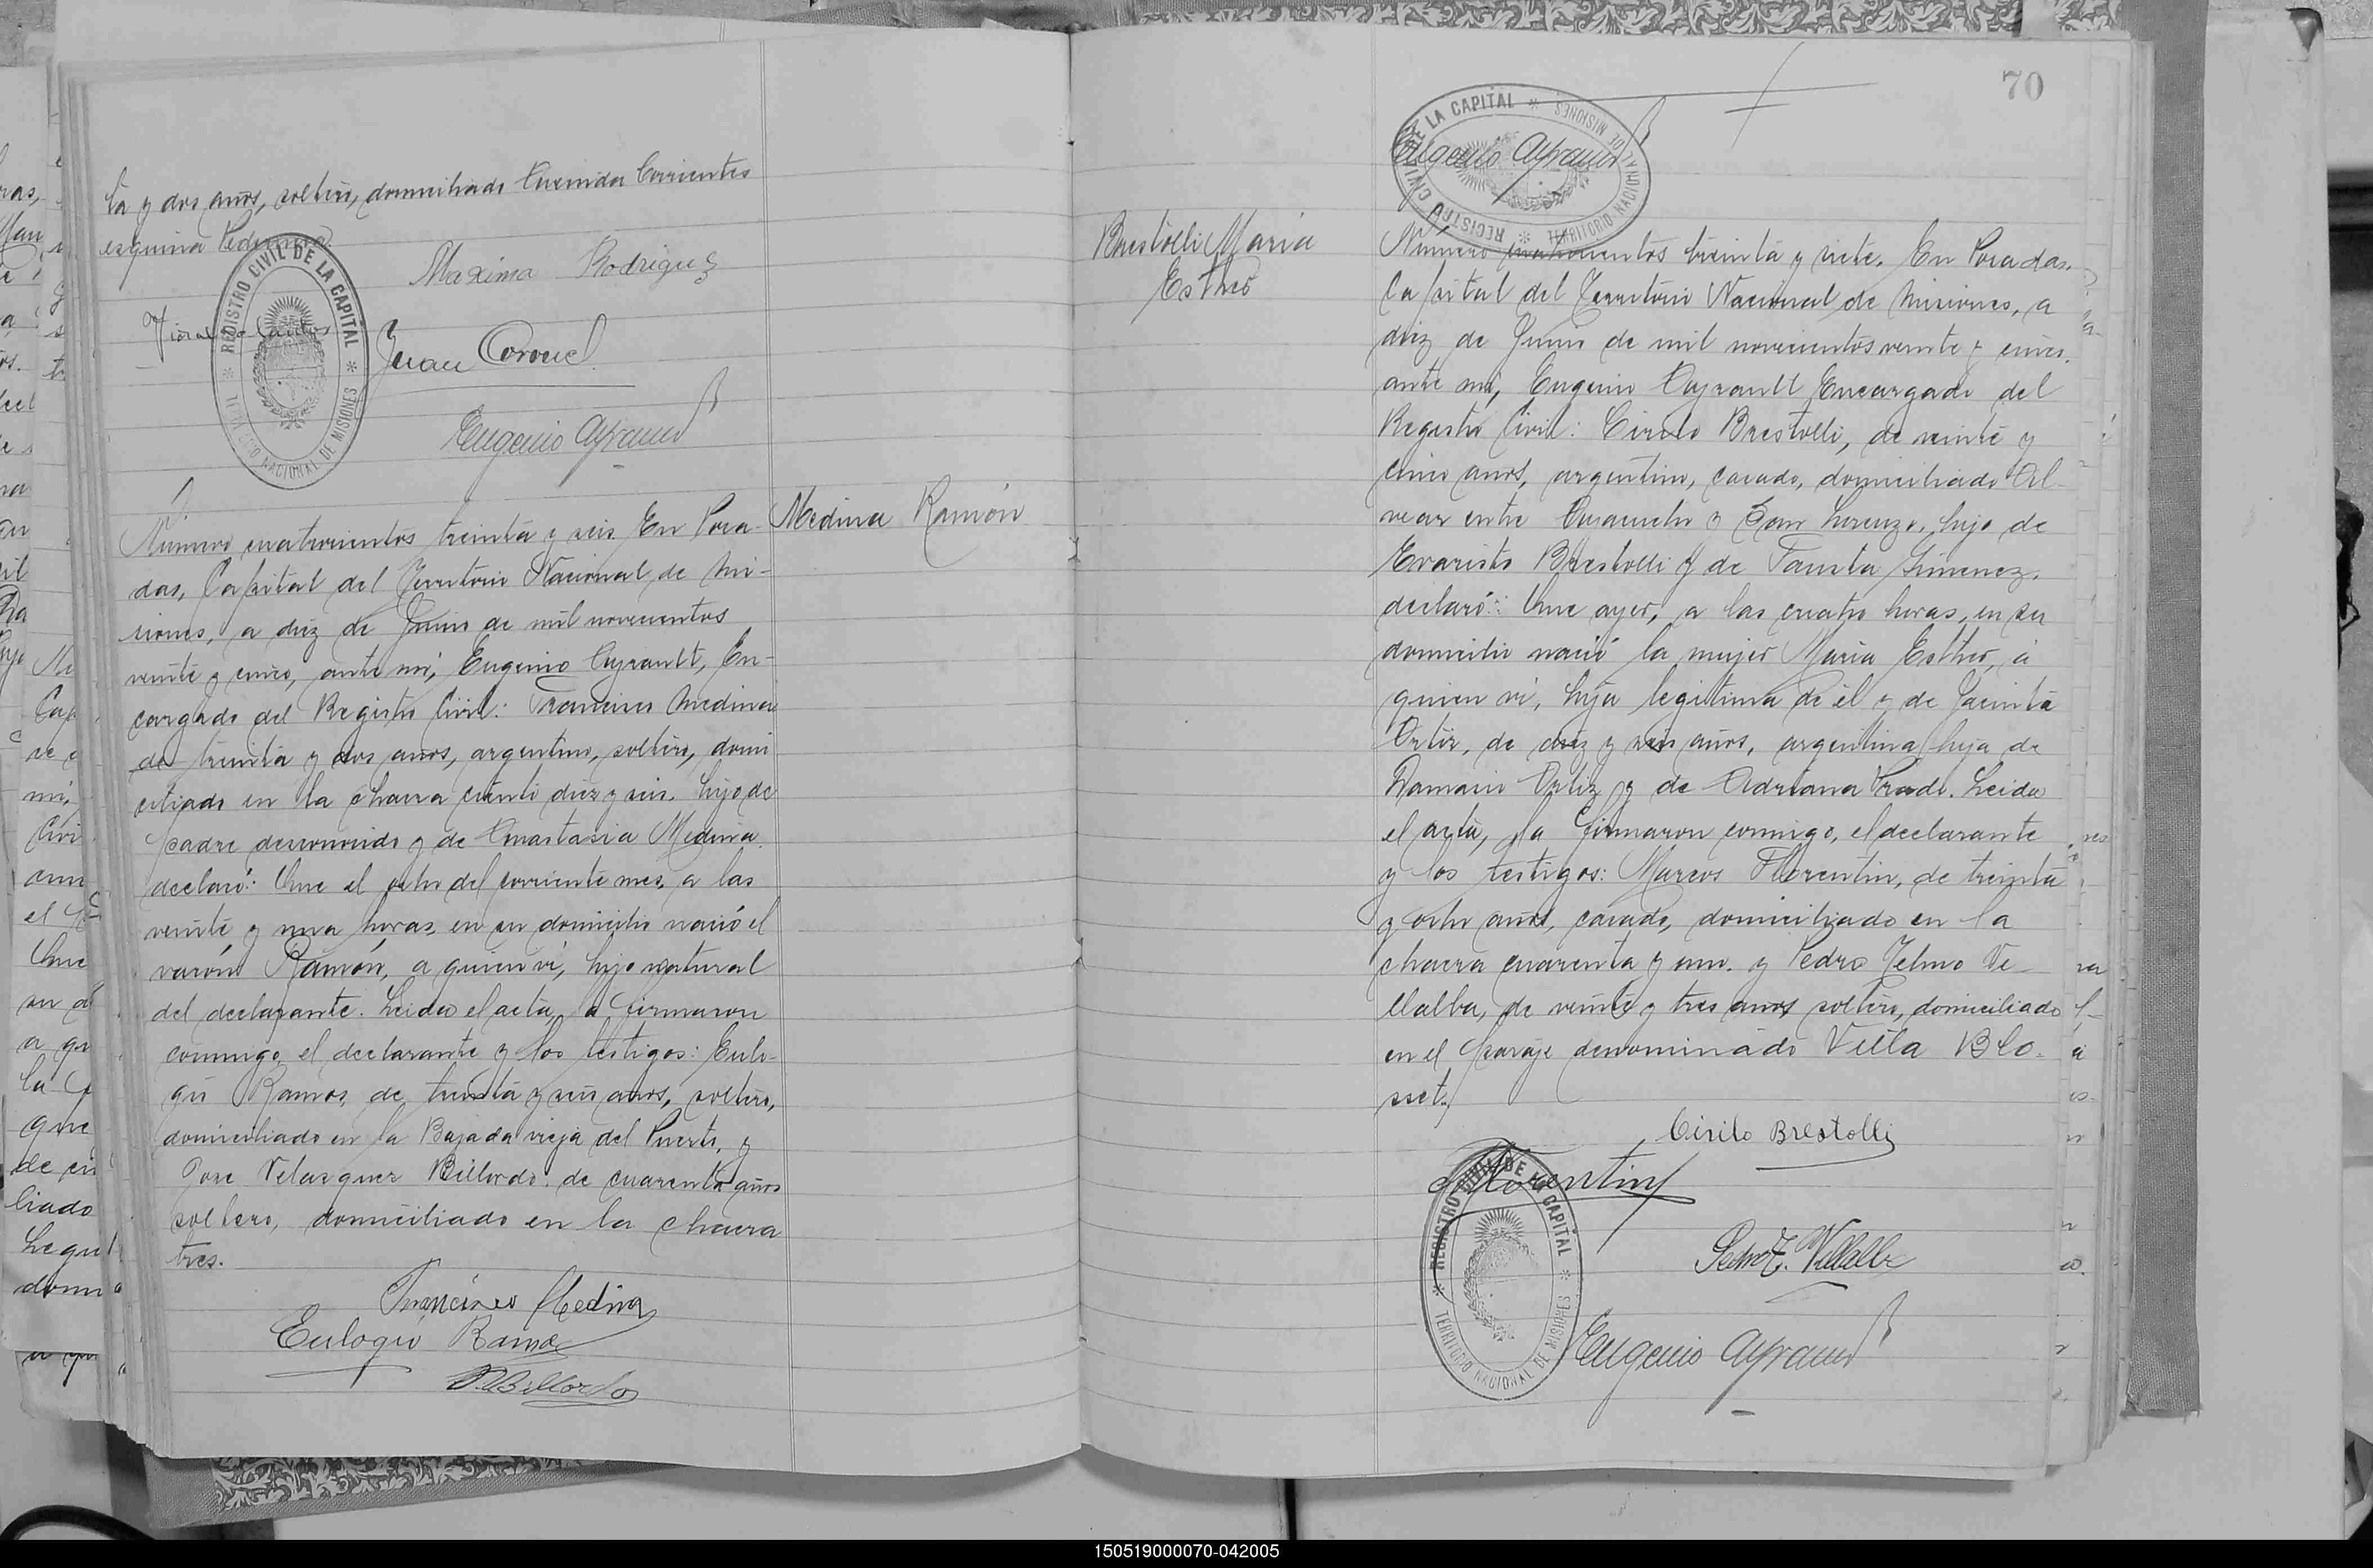 ta y dos años, soltero, domiciliado Avenida Corrientes
esquina Pedernera
Maxima Rodriguez
Juan Coronel
Eugenio Ayrault
REGISTRO CIVIL DE LA CAPITAL
TERRITORIO NACIONAL DE MISIONES
Medina Ramón
Número cuatrocientos treinta y seis En Posa-
das, Capital del Territorio Nacional de Mi-
siones, a diez de Junio de mil novecientos
veinte y cinco, ante mí, Eugenio Ayrault, En-
cargado del Registro Civil: Francisco Medina
de treinta y dos años, argentino, soltero, domi
ciliado en la chacra ciento diez y seis. hijo de
padre desconocido y de Anastasia Medina.
declaró: Que el ocho del corriente mes, a las
veinte y una horas, en su domicilio nació el
varón Ramón, a quien vi, hijo natural
del declarante. Leida el acta, la firmaron
conmigo, el declarante y los testigos: Eulo-
gio Ramos, de treinta y seis años, soltero,
domiciliado en la Bajada vieja del Puerto, y
Jose Velasquez Billordo: de cuarenta años
soltero, domiciliado en la chacra
tres.
Francisco Medina
Eulogio Ramos
Billordo
70
REGISTRO CIVIL DE LA CAPITAL
TERRITORIO NACIONAL DE MISIONES
Eugenio Ayrault
Brestolli María
Esther
Número cuatrocientos treinta y siete. En Posadas.
Capital del Territorio Nacional de Misiones, a
diez de Junio de mil novecientos veinte y cinco.
ante mí, Eugenio Ayrault Encargado del
Registro Civil: Cirilo Brestolli, de veinte y
cinco años, argentino, casado, domiciliado Al-
vear entre Ayacucho y San Lorenzo, hijo de
Evaristo Brestolli y de Fausta Gimenez.
declaró: Que ayer, a las cuatro horas, en su
domicilio nació la mujer María Esther, a
quien vi, hija legitima de él y de Jacinta
Ortiz, de diez y seis años, argentina, hija de
Damacio Ortiz y de Adriana Prado. Leida
el acta, la firmaron conmigo, el declarante
y los testigos: Marcos Florentin, de treinta
y ocho años, casado, domiciliado en la
chacra cuarenta y uno. y Pedro Telmo Vi-
llalba, de veinte y tres años soltero, domiciliado
en el paraje denominado Villa Blo-
sset.
Cirilo Brestolli
Florentin
Pedro T. Villalba
REGISTRO CIVIL DE LA CAPITAL
TERRITORIO NACIONAL DE MISIONES
Eugenio Ayrault
150519000070-042005